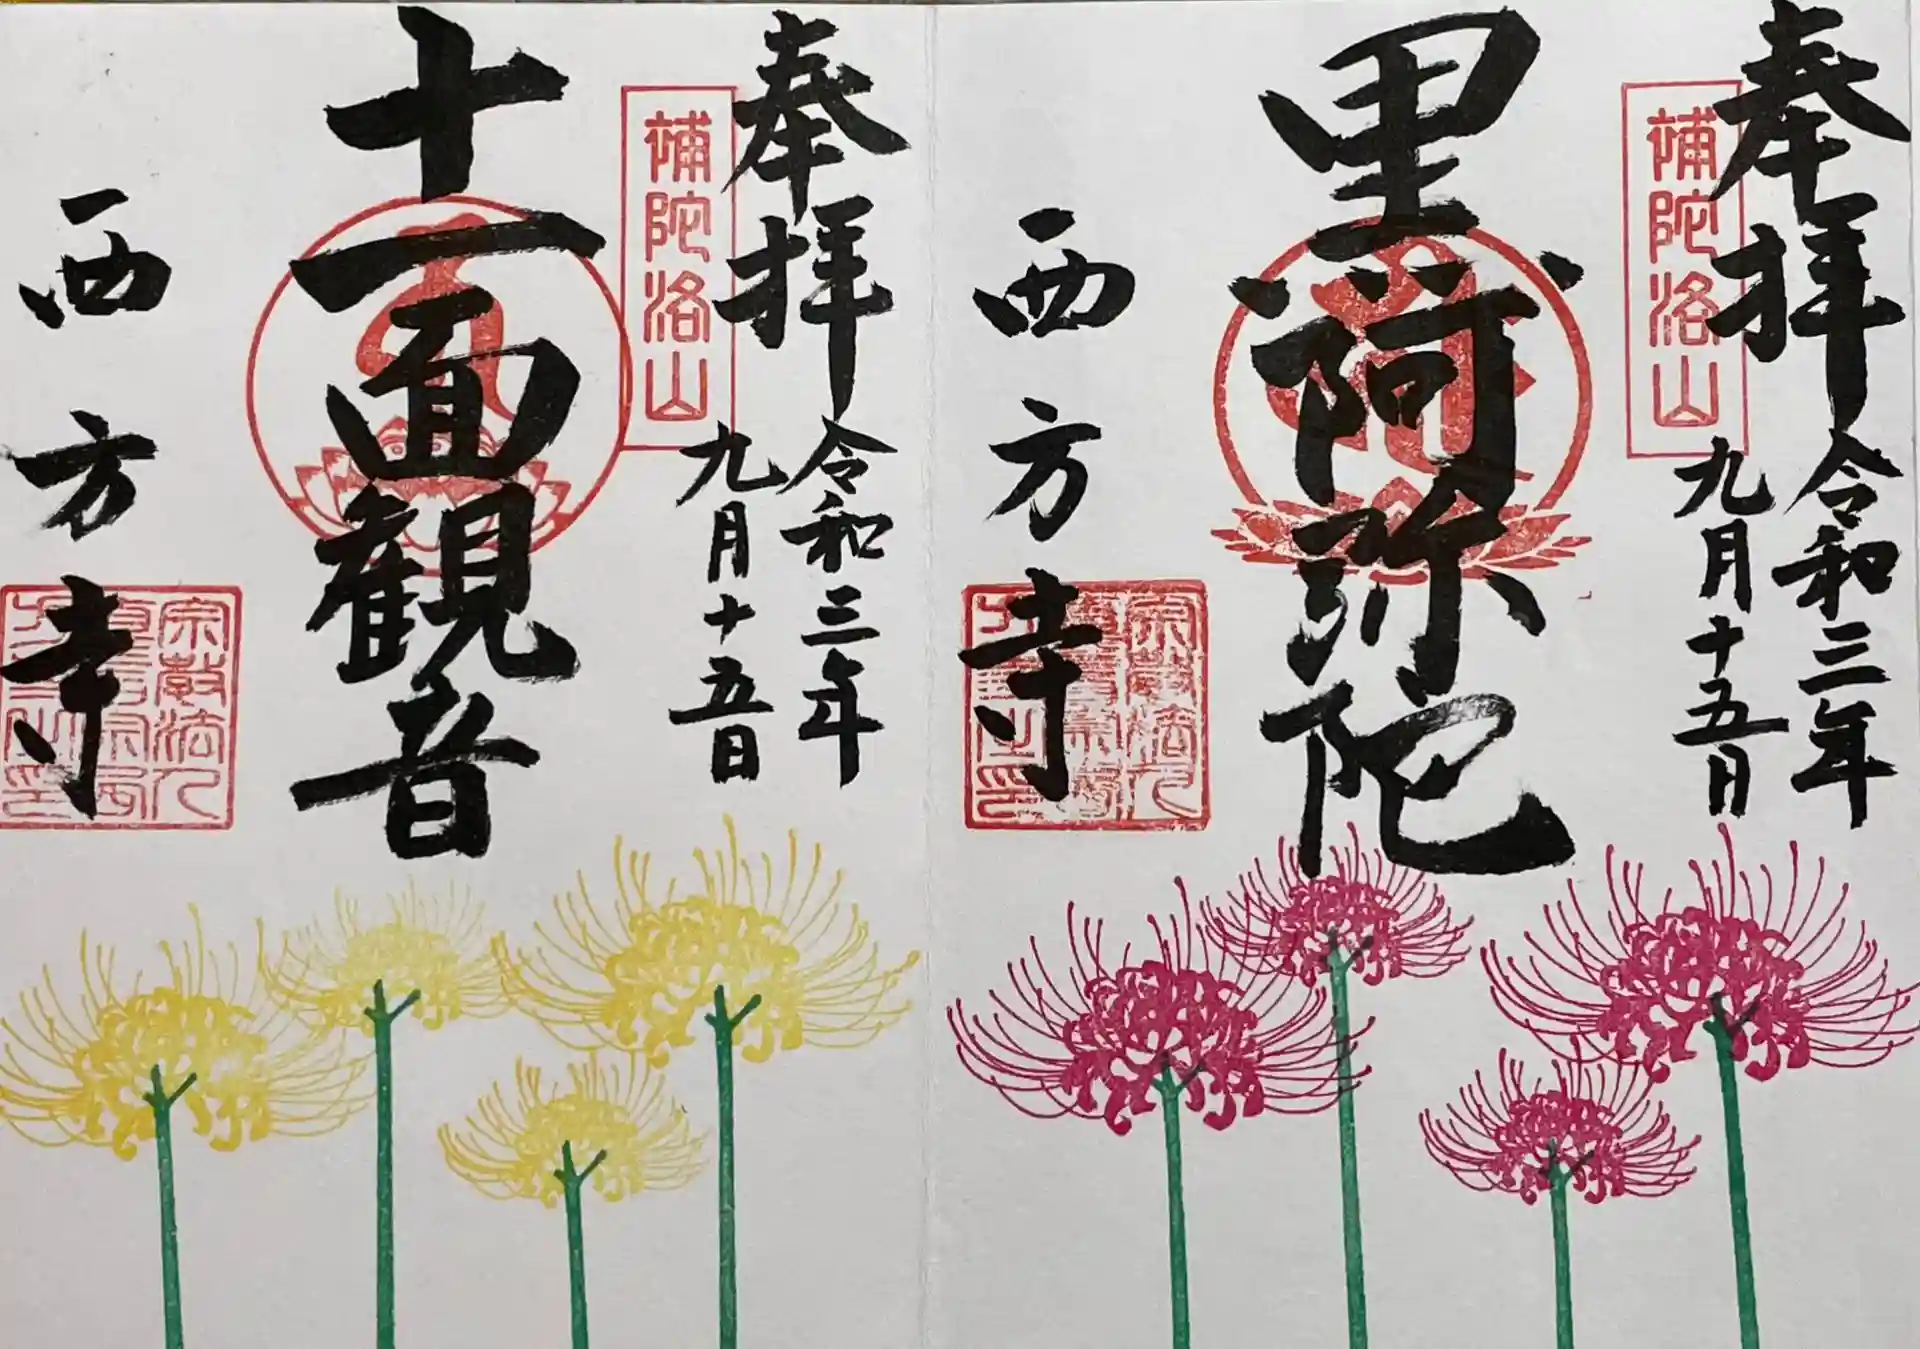 奉拝
令和三年
九月十五日
補陀洛山
黒阿弥陀
西方寺
奉拝
令和三年
九月十五日
補陀洛山
十一面観音
西方寺